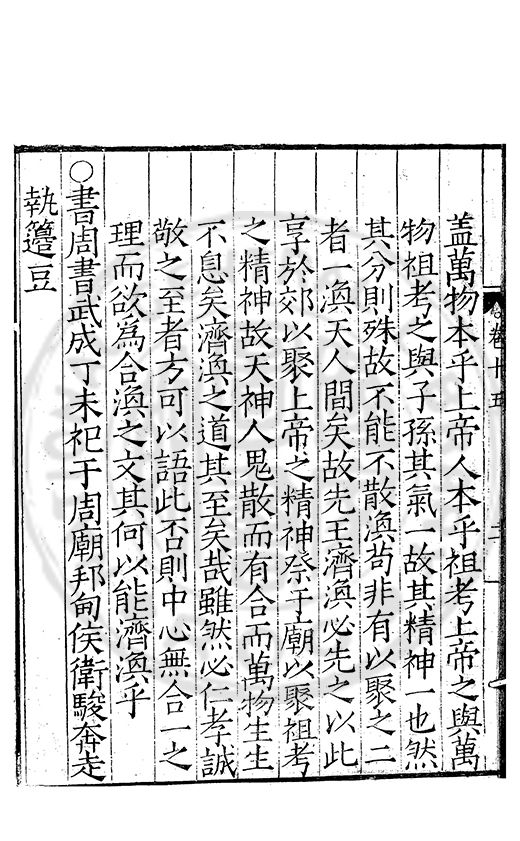 蓋萬物本乎上帝人本乎祖考上帝之與萬
物祖考之與子孫其氣一故其精神一也然
其分則殊故不能不散渙苟非有以聚之二
者一渙天人間矣故先王濟渙必先之以此
享於郊以聚上帝之精神祭于廟以聚祖考
之精神故天神人鬼散而有合而萬物生生
不息矣濟渙之道其至矣哉雖然必仁孝誠
敬之至者方可以語此否則中心無合一之
理而欲為合渙之文其何以能濟渙乎
○書周書武成丁未祀于周廟邦甸侯衛駿奔走
執籩豆
卷十五
二